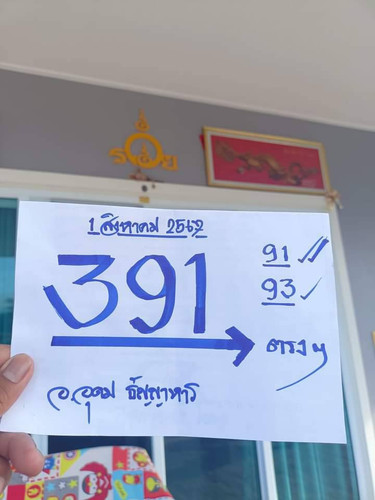 รวย
1 สิงหาคม 2567
391
91
93
ตรงๆ
อ.อุดม ธัญญาหาร